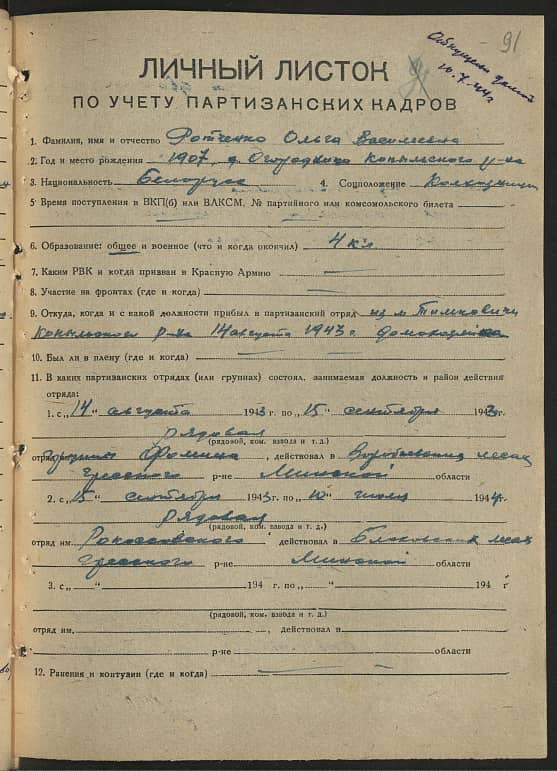 91
10.7.44 г.
ЛИЧНЫЙ ЛИСТОК
ПО УЧЕТУ ПАРТИЗАНСКИХ КАДРОВ
1. Фамилия, имя и отчество Ротченко Ольга Васильевна
2. Год и место рождения 1907, д. Огородники Копыльского р-на
3. Национальность Белорус 4. Соцположение Колхозница
5. Время поступления в ВКП(б) или ВЛКСМ, № партийного или комсомольского билета
6. Образование: общее и военное (что и когда окончил) 4 кл.
7. Каким РВК и когда призван в Красную Армию —
8. Участие на фронтах (где и когда) —
9. Откуда, когда и с какой должности прибыл в партизанский отряд из м Тимковичи
Копыльского р-на 14 августа 1943 г. домохозяйка
10. Был ли в плену (где и когда) — —
11. В каких партизанских отрядах (или группах) состоял, занимаемая должность и район действия
отряда:
1. с „14" августа 1943 г. по „15" сентября 1943 г.
рядовая
(рядовой, ком. взвода и т. д.)
отряд Фомина, действовал в лесах
Гресского р-не Минской области
2. с „15" сентября 1943 г. по „10" июля 1944 г.
рядовая
(рядовой, ком. взвода и т. д.)
отряд им. Рокоссовского действовал в лесах
Гресского р-не Минской области
3. с „ " 194 г. по „ " 194 г
(рядовой, ком. взвода и т. д.)
отряд им. , действовал в
р-не области
12. Ранения и контузии (где и когда) — —